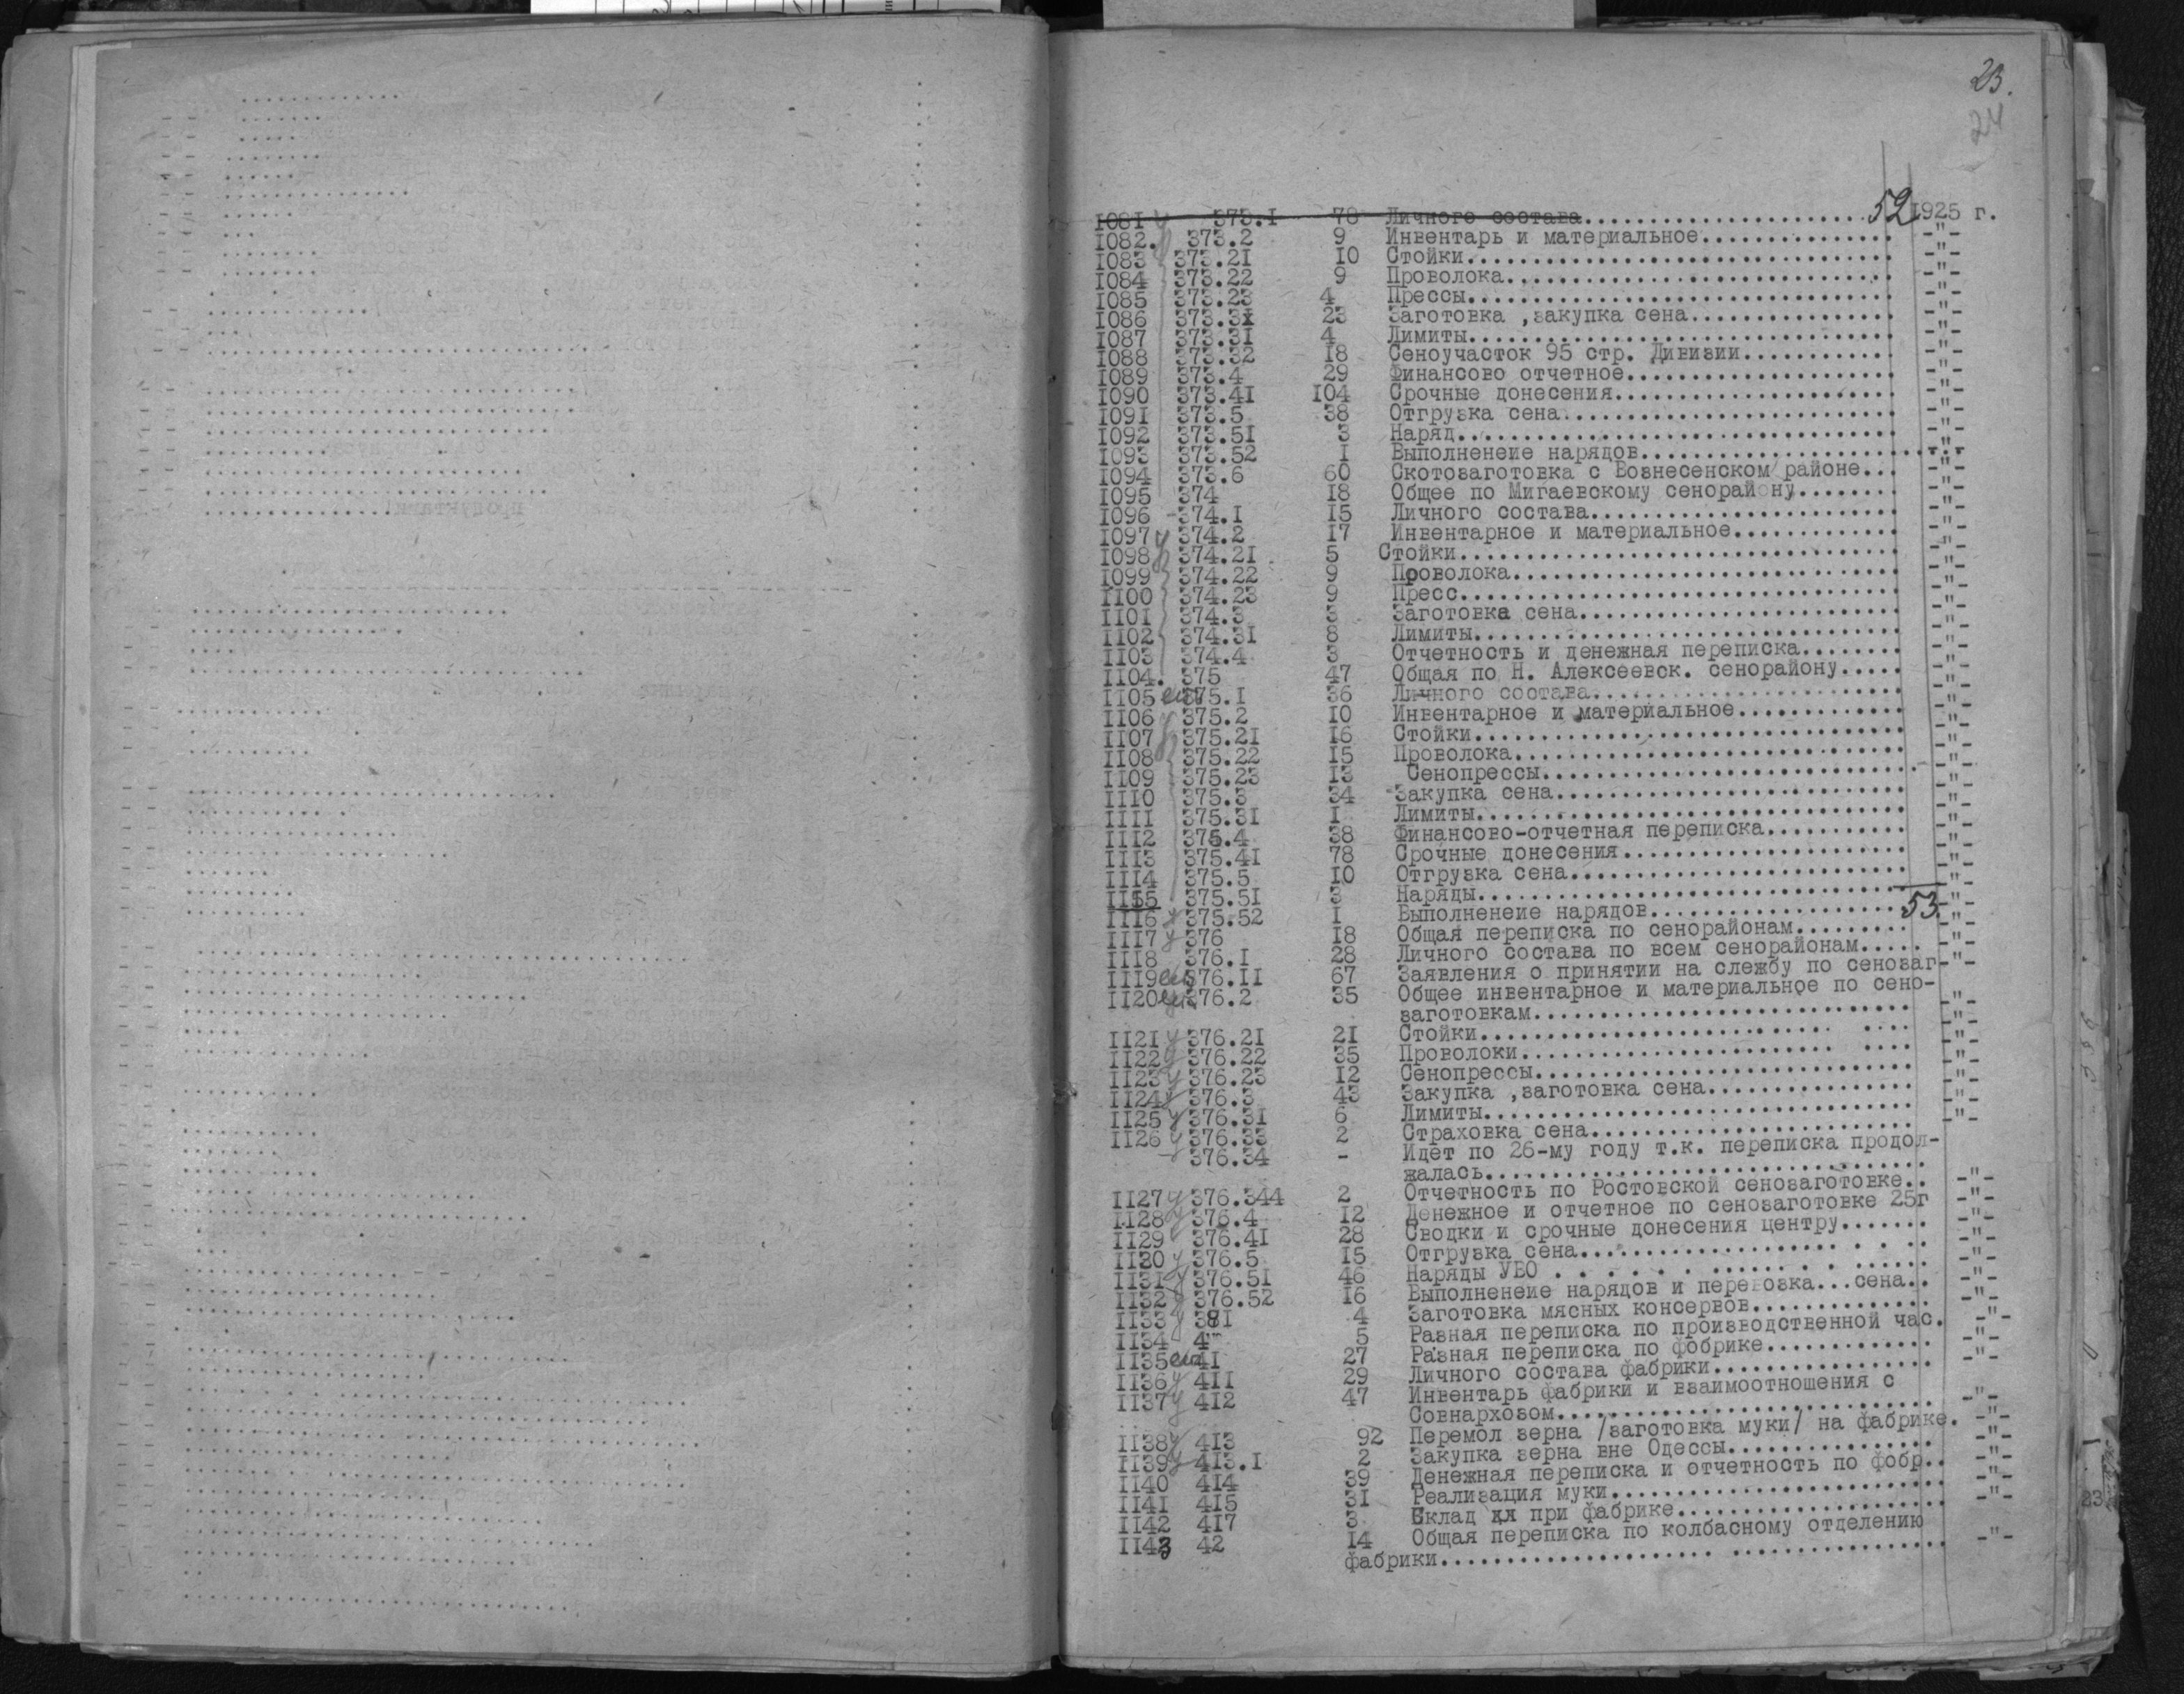 23.
24
1081 373.1 78 Личного состава.................... 52 1925 г.
1082. 373.2 9 Инвентарь и материальное............... -"-
1083 373.21 10 Стойки................................ -"-
1084 373.22 9 Проволока............................. -"-
1085 373.23 4 Прессы................................ -"-
1086 373.3 23 Заготовка ,закупка сена................ -"-
1087 373.31 4 Лимиты................................ -"-
1088 373.32 18 Сеноучасток 95 стр. Дивизии............ -"-
1089 373.4 29 Финансово отчетное..................... -"-
1090 373.41 104 Срочные донесения..................... -"-
1091 373.5 38 Отгрузка сена......................... -"-
1092 373.51 3 Наряд................................. -"-
1093 373.52 1 Выполненеие нарядов..................... -"-
1094 373.6 60 Скотозаготовка с Вознесенском районе... -"-
1095 374 18 Общее по Мигаевскому сенорайону........ -"-
1096 -374.1 15 Личного состава....................... -"-
1097 374.2 17 Инвентарное и материальное............. -"-
1098 374.21 5 Стойки................................ -"-
1099 374.22 9 Проволока............................. -"-
1100 374.23 9 Пресс................................. -"-
1101 374.3 3 Заготовка сена........................ -"-
1102 374.31 8 Лимиты................................ -"-
1103 374.4 3 Отчетность и денежная переписка........ -"-
1104. 375 47 Общая по Н. Алексеевск. сенорайону..... -"-
1105 375.1 36 Личного состава....................... -"-
1106 375.2 10 Инвентарное и материальное............. -"-
1107 375.21 16 Стойки................................ -"-
1108 375.22 15 Проволока............................. -"-
1109 375.23 13 Сенопрессы............................ -"-
1110 375.3 34 Закупка сена.......................... -"-
1111 375.31 1 Лимиты................................ -"-
1112 375.4 38 Финансово-отчетная переписка........... -"-
1113 375.41 78 Срочные донесения..................... -"-
1114 375.5 10 Отгрузка сена......................... -"-
1155 375.51 3 Наряды................................ -"-
1116 375.52 1 Выполненеие нарядов................... 53. -"-
1117 376 18 Общая переписка по сенорайонам......... -"-
1118 376.1 28 Личного состава по всем сенорайонам..... -"-
1119 376.11 67 Заявления о принятии на слежбу по сенозаг -"-
1120 376.2 35 Общее инвентарное и материальное по сено-
заготовкам............................ -"-
1121 376.21 21 Стойки.......................... .... -"-
1122 376.22 35 Проволоки........................ .... -"-
1123 376.23 12 Сенопрессы............................ -"-
1124 376.3 43 Закупка ,заготовка сена................ -"-
1125 376.31 6 Лимиты................................ -"-
1126 376.33 2 Страховка сена........................ -"-
376.34 - Идет по 26-му году т.к. переписка продол-
жалась................................
1127 376.344 2 Отчетность по Ростовской сенозаготовке.. -"-
1128 376.4 12 Денежное и отчетное по сенозаготовке 25г -"-
1129 376.41 28 Сводки и срочные донесения центру....... -"-
1130 376.5 15 Отгрузка сена................... . . .. -"-
1131 376.51 46 Наряды УВО . . . . . . ...... . ...... -"-
1132 376.52 16 Выполненеие нарядов и перевозка...сена.. -"-
1133 381 4 Заготовка мясных консервов.............. -"-
1134 4 5 Разная переписка по производственной час. -"-
1135 41 27 Разная переписка по фобрике............. -"-
1136 411 29 Личного состава фабрики................ -"-
1137 412 47 Инвентарь фабрики и взаимоотношения с
Совнархозом........................... -"-
1138 413 92 Перемол зерна /заготовка муки/ на фабрике. -"-
1139 413.1 2 Закупка зерна вне Одессы................ -"-
1140 414 39 Денежная переписка и отчетность по фобр.. -"-
1141 415 31 Реализация муки........................ -"-
1142 417 3 при фабрике.................... -"-
1143 42 14 Общая переписка по колбасному отделению
фабрики..................... ................ -"-